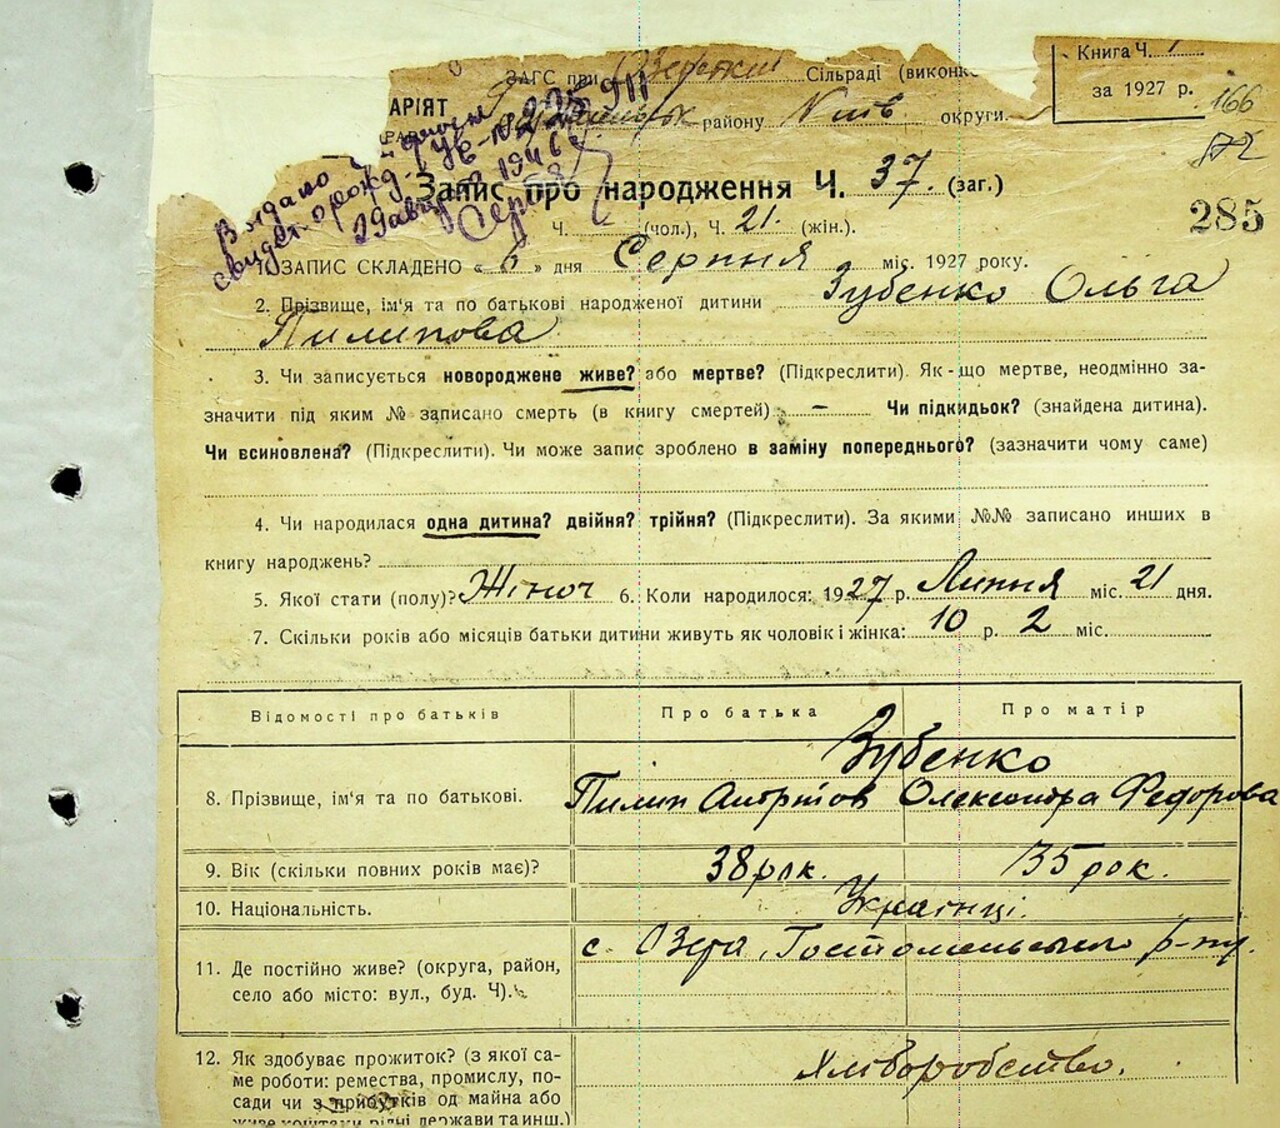 Книга Ч. 1
ЗАГС при Озерскій Сільраді (виконк
за 1927 р. 166
АРІЯТ
району Київ. округи.
172
Видано
свидет. о рожд. УБ-№ 225911
29 авгу 1946
Запис про народження Ч. 37. (заг.)
285
Ч. (чол.), Ч. 21. (жін.).
1. ЗАПИС СКЛАДЕНО « 6 » дня Серпня міс. 1927 року.
2. Прізвище, ім'я та по батькові народженої дитини Зубенко Ольга
Пилипова
3. Чи записується новороджене живе? або мертве? (Підкреслити). Як-що мертве, неодмінно за-
значити під яким № записано смерть (в книгу смертей) – Чи підкидьок? (знайдена дитина).
Чи всиновлена? (Підкреслити). Чи може запис зроблено в заміну попереднього? (зазначити чому саме)
4. Чи народилася одна дитина? двійня? трійня? (Підкреслити). За якими №№ записано инших в
книгу народжень?
5. Якої стати (полу)? Жіноч 6. Коли народилося: 1927 р. Липня міс. 21 дня.
7. Скільки років або місяців батьки дитини живуть як чоловік і жінка: 10 р. 2 міс.
Відомості про батьків Про батька Про матір
Зубенко
8. Прізвище, ім'я та по батькові. Пилип Олександра Федорова
9. Вік (скільки повних років має)? 38 рок. 35 рок.
10. Національність. Українці.
11. Де постійно живе? (округа, район, с. Озера, Гостомельського р-ну.
село або місто: вул., буд. Ч).
12. Як здобуває прожиток? (з якої са- Хліборобство.
ме роботи: ремества, промислу, по-
сади чи з прибутків од майна або
живе коштами рідні держави та инш.)